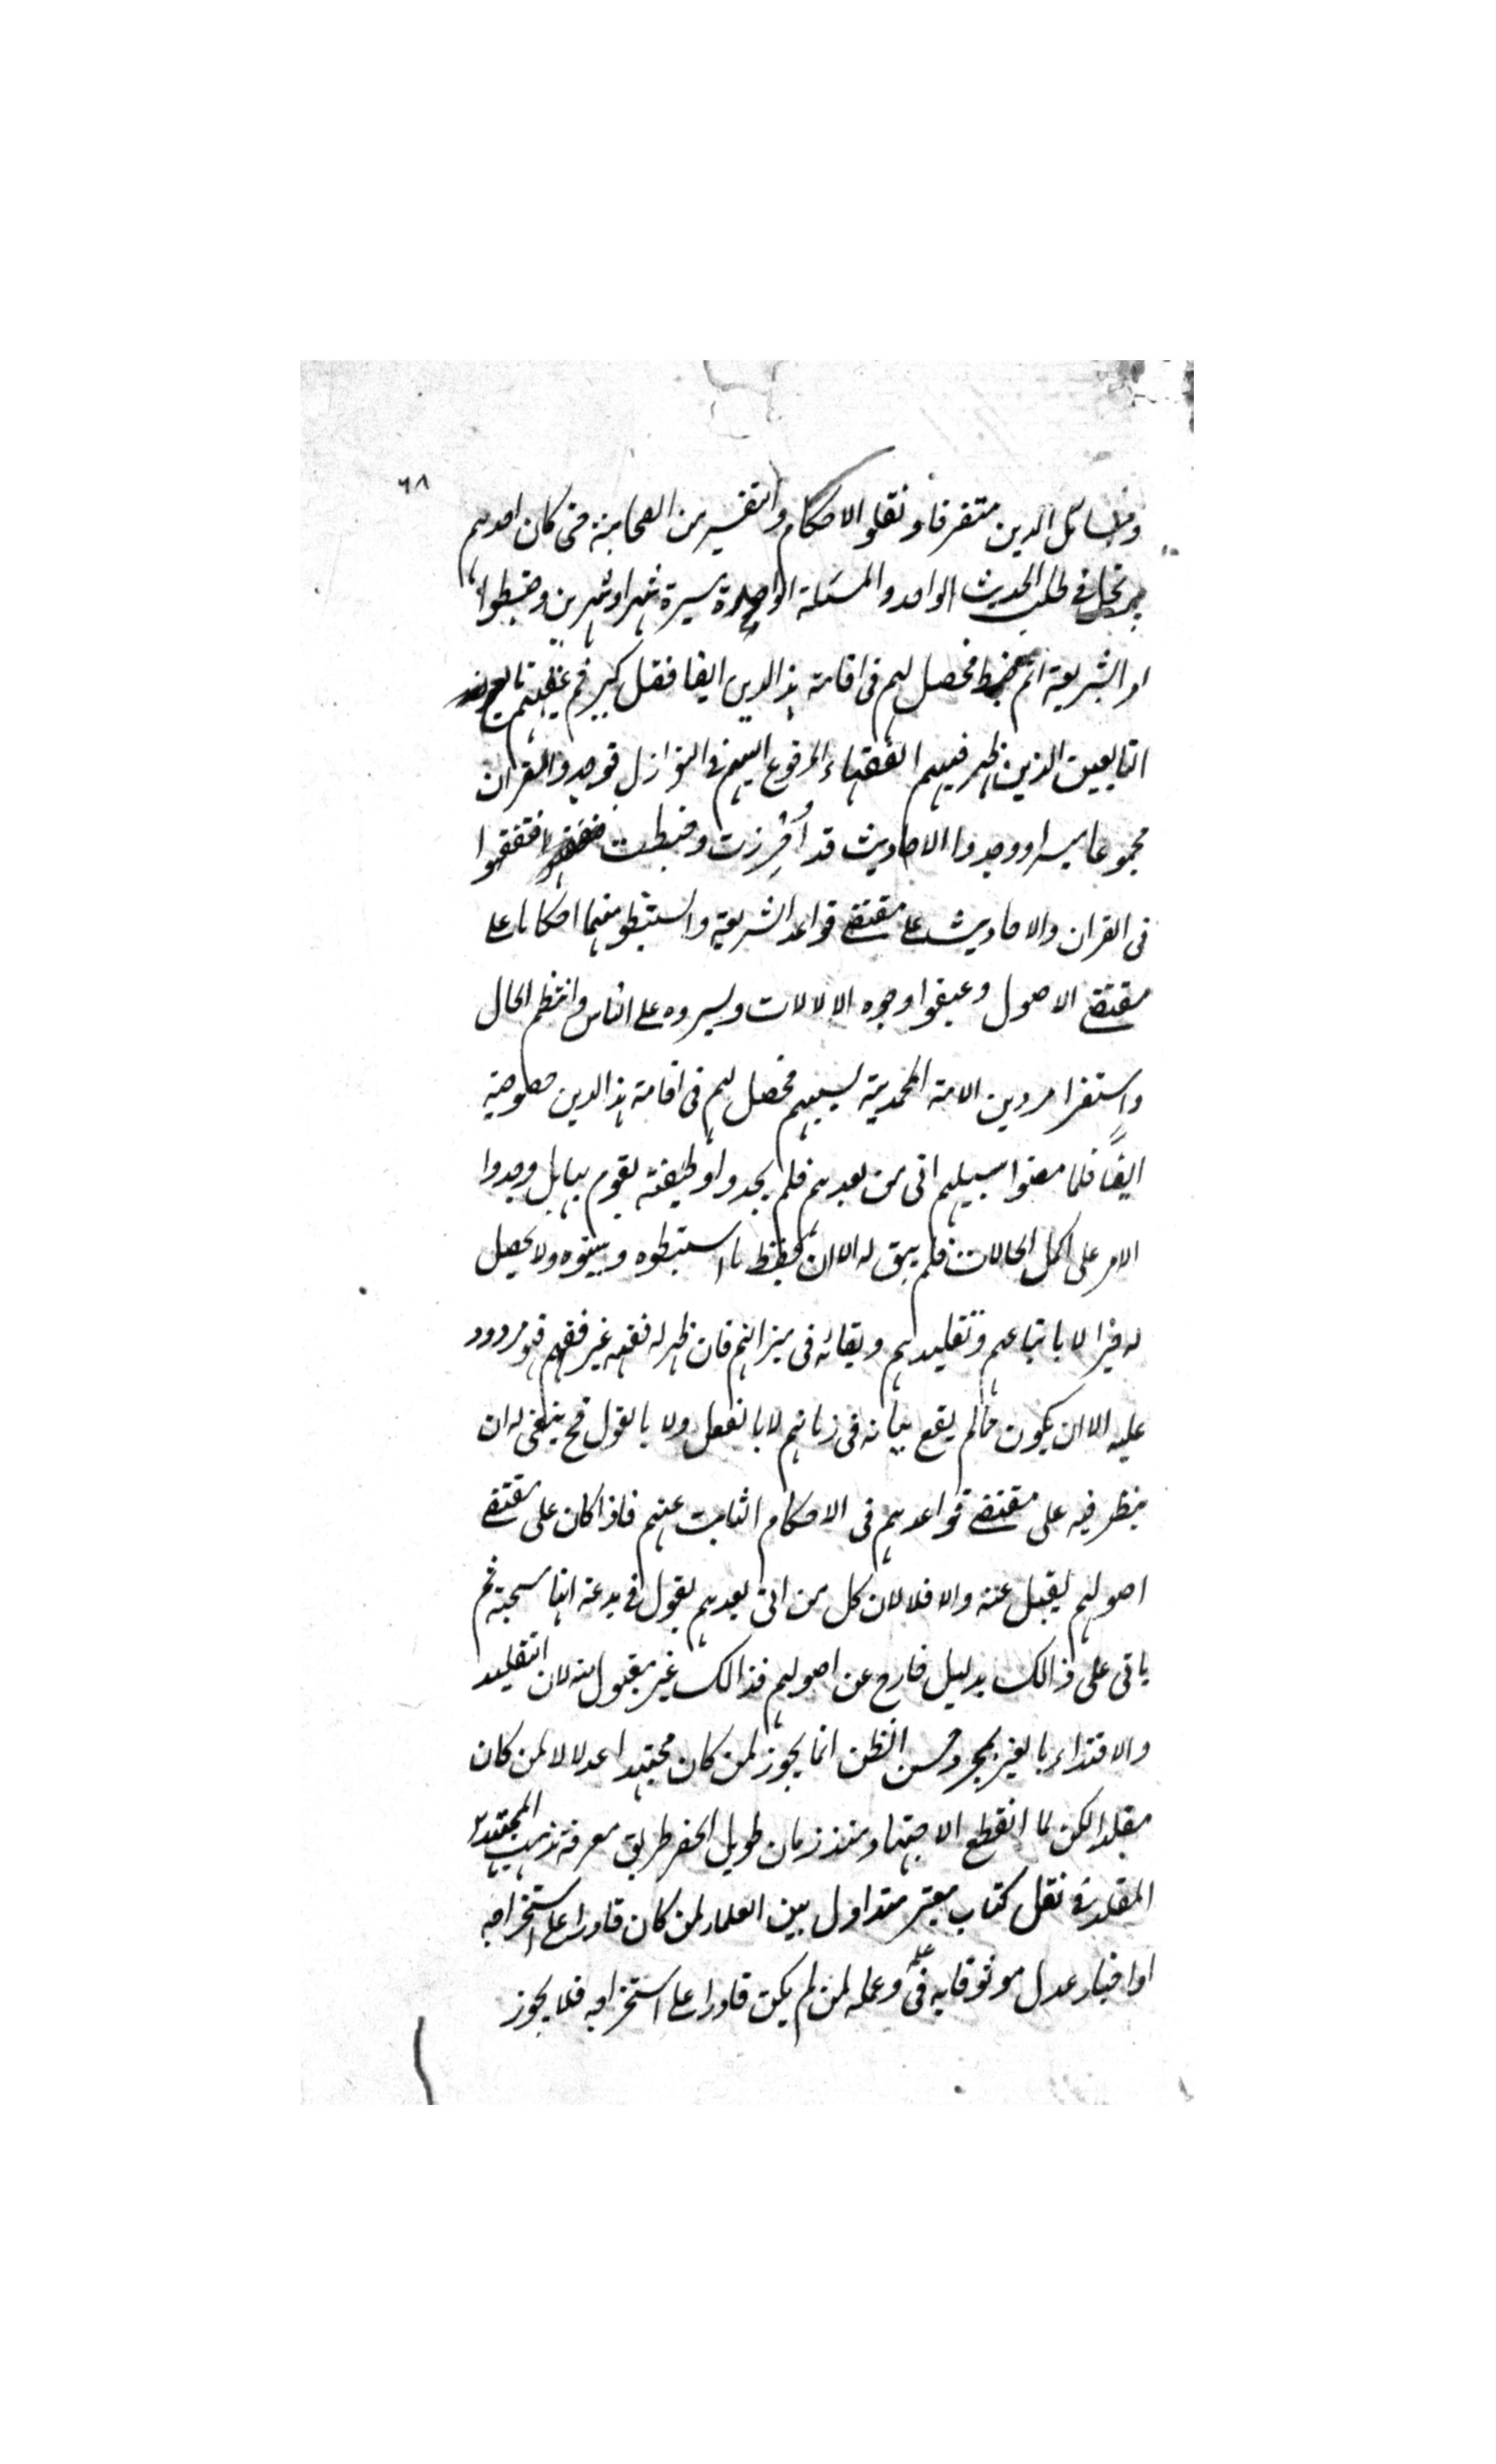 ٦٨
ومسائل الدين متفرقا ونقلوا الاحكام والتفسير من الصحابة حتى كان احدهم
يرتحل في طلب الحديث الواحد والمسئلة الواحدة مسيرة شهر او شهرين وضبطوا
امر الشريعة اتم ضبط فحصل لهم في اقامة هذا الدين ايضا فضل كبير ثم عقبهم تابع
التابعين الذين ظهر فيهم الفقهاء المرفوع اليهم في النوازل فوجدوا القران
مجموعا ميسرا ووجدوا الاحاديث قد اُحرِزت وضبطت فتفقهوا
في القران والاحاديث على مقتضى قواعد الشريعة واستنبطو منهما احكاما على
مقتضى الاصول وعينوا وجوه الالالات ويسروه على الناس وانتظم الحال
واستقر امر دين الامة المحمدية بسببهم فحصل لهم في اقامة هذا الدين خصوصية
ايضًا فلما مضوا سبيلهم اتى من بعدهم فلم يجدوا وظيفة يقوم بها بل وجدوا
الامر على اكمل الحالات فلم يبق له الا ان يحفظ ما استنبطوه وبينوه ولا يحصل
له خيرا لا باتباعهم وتقليدهم وبقائه في ميزانهم فان ظهر له فقه غير فقههم فهو مردود
عليه الا ان يكون مما لم يقع بيانه في زمانهم لا بالفعل ولا بالقول فح ينبغي له ان
ينظر فيه على مقتضى قواعدهم في الاحكام الثابت عنهم فاذا كان على مقتضى
اصولهم يقبل عنه والا فلا لان كل من اتى بعدهم يقول في بدعة انها مستحبة ثم
ياتى على ذالك بدليل خارج عن اصولهم فذالك غير مقبول منه لان التقليد
والاقتداء بالغير بمجرد حسن الظن انما يجوز لمن كان مجتهدا عدلا لا لمن كان
مقلدا لكن لما انقطع الاجتهاد منذ زمان طويل انحصر طريق معرفة مذهب المجتهد
المقلد في نقل كتاب معتبر متداول بين العلماء لمن كان قادرا على استخراجه
او اخبار عدل موثوقا به في علمه وعمله لمن لم يكن قادرا على استخراجه فلا يجوز